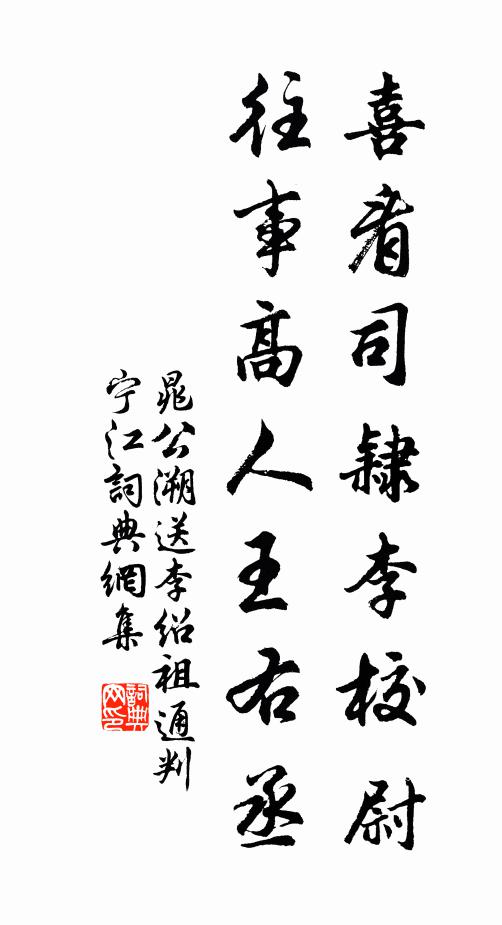 喜看司隸李校尉
往事高人王右丞
晁公溯送李紹祖通判
宁江詞典網集
詞典
网印